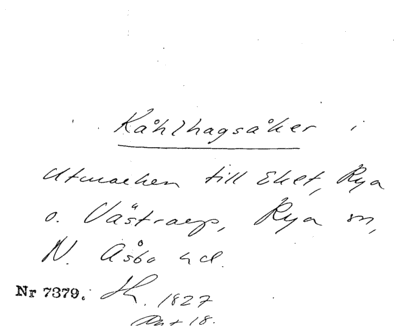 Kåhlhagsåker i
Utmarken till Eket, Rya
o. Västraup, Rya sn,
N. Åsbo hd.
Nr 7379. 1827
18.